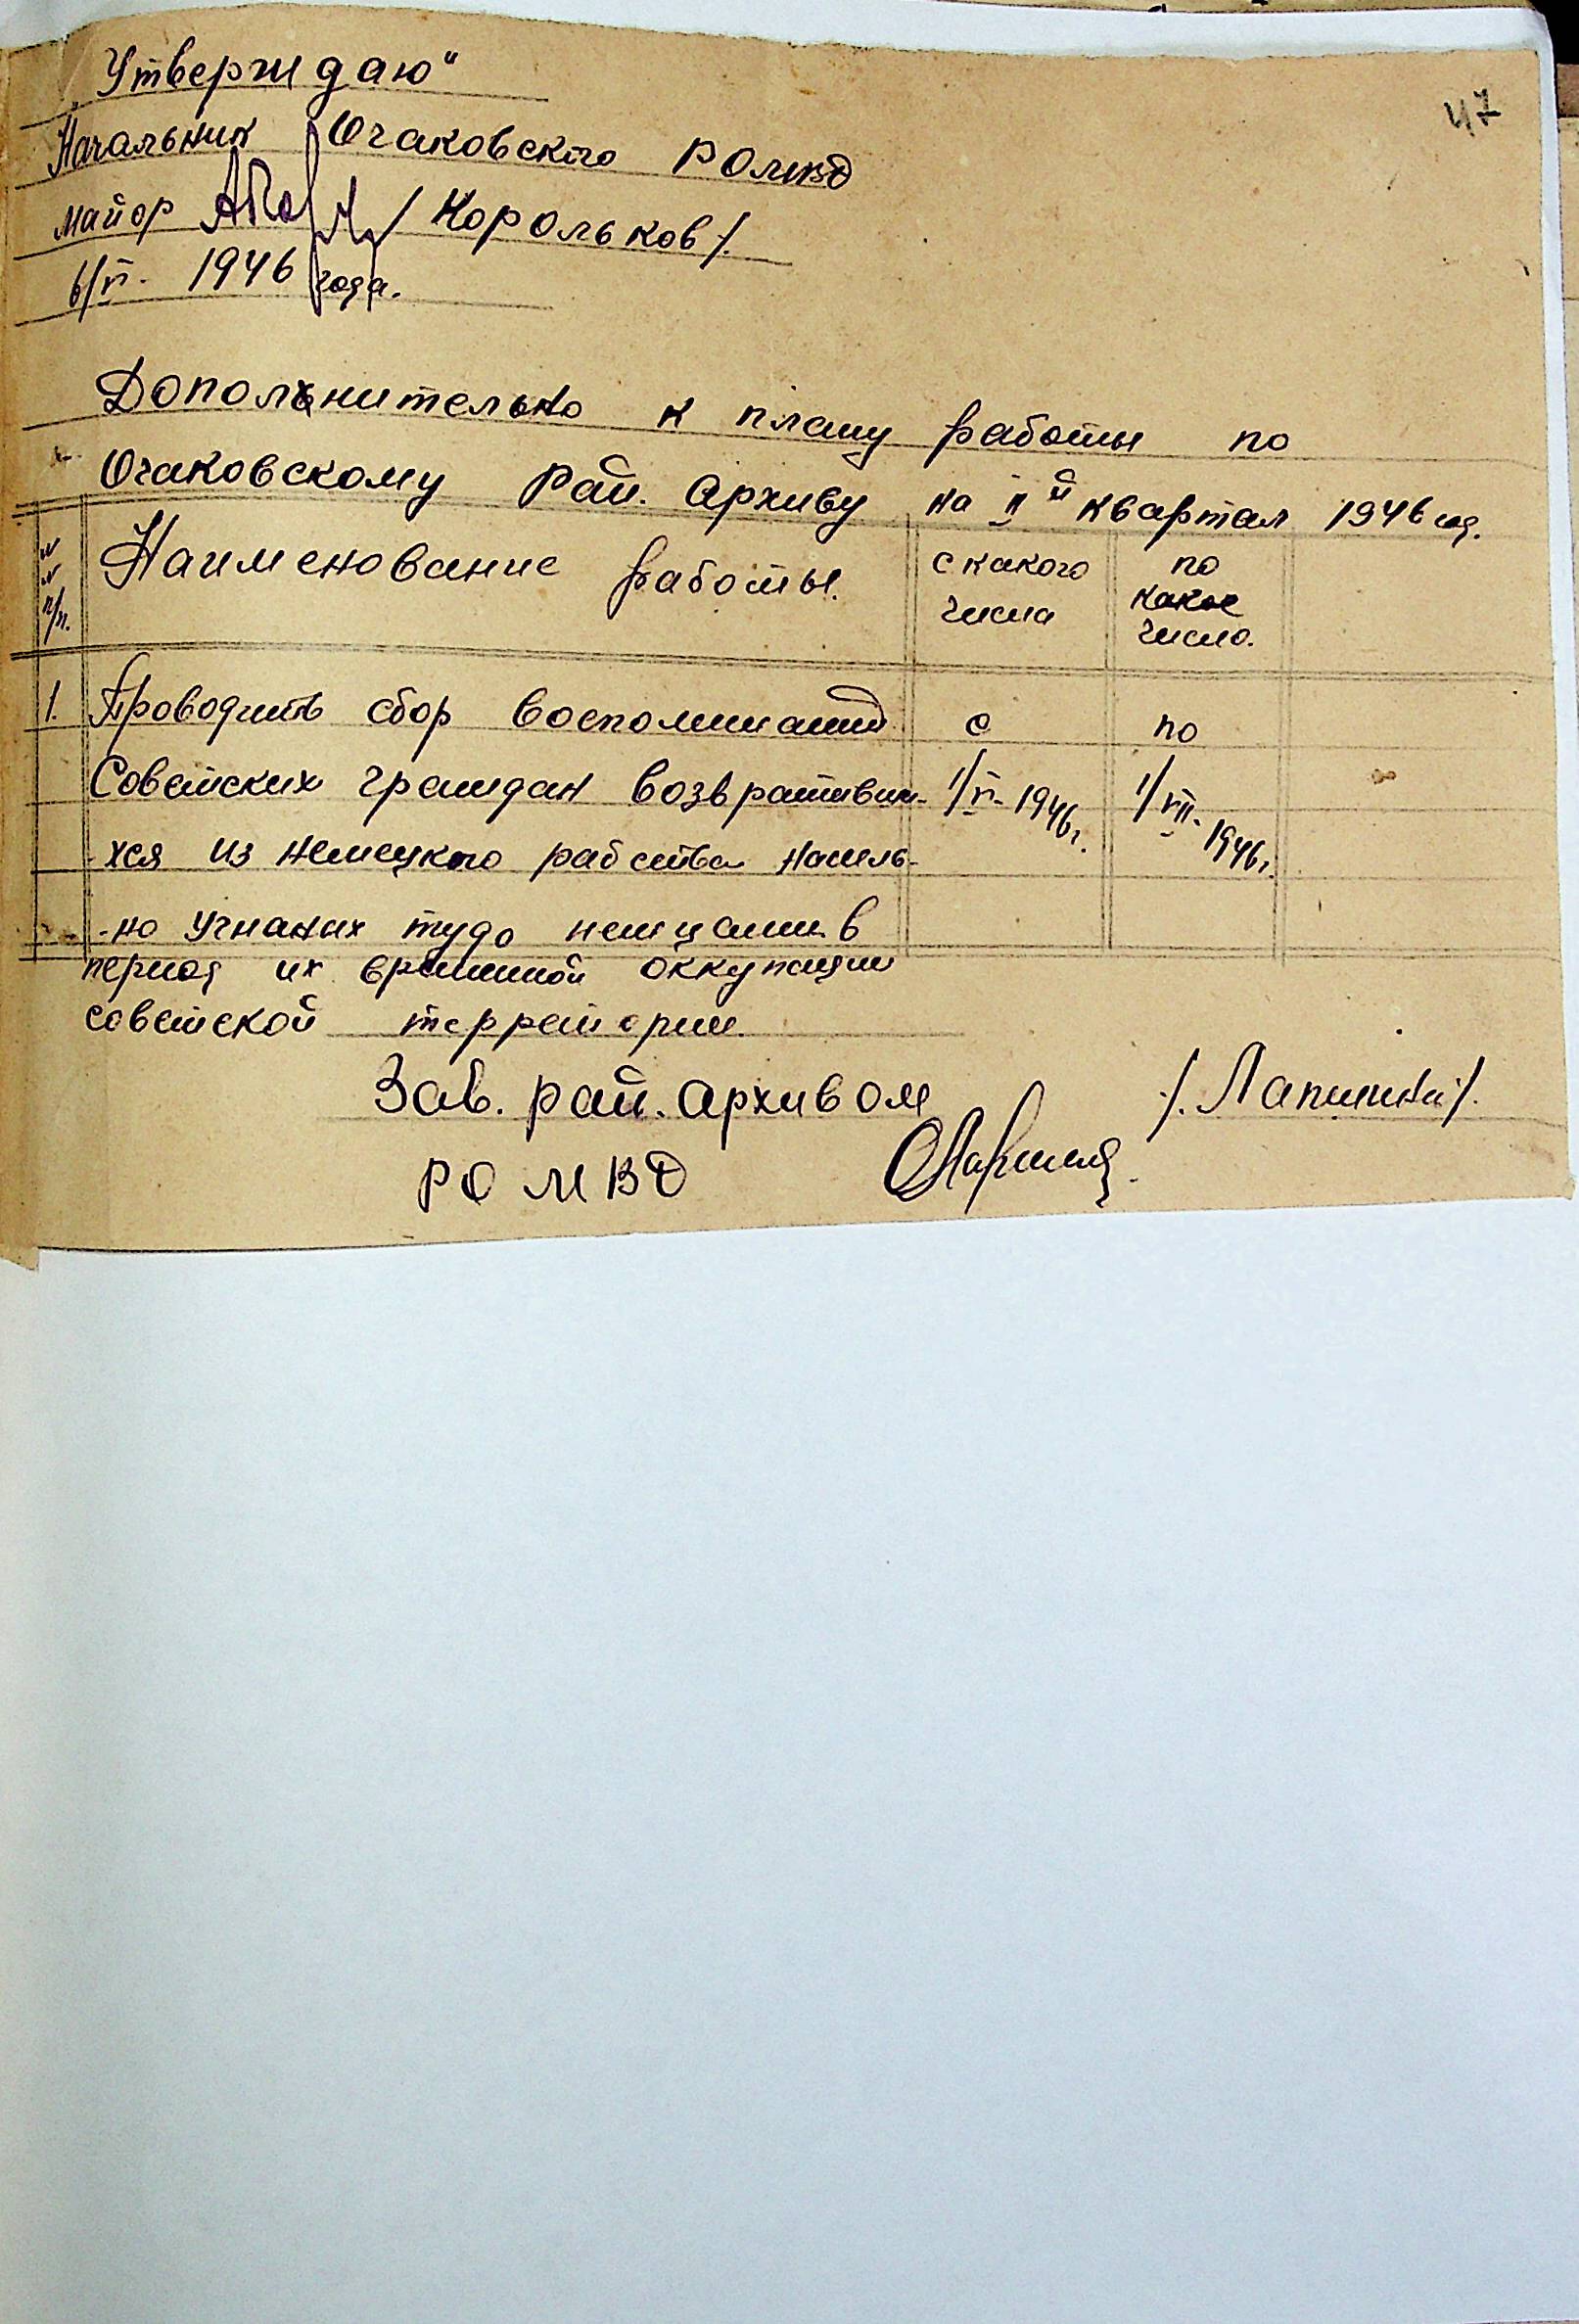 47
„Утверждаю"
Начальник Очаковского РОМВД
майор /Корольков/.
6/VI- 1946 года.
Дополнительно к плану работы по
Очаковскому Рай. Архиву на II й квартал 1946 год.
№ № п/п. Наименование работы. с какого числа по какое число.
1. Проводить сбор воспоминаний с по
Советских граждан возвративши- 1/VI- 1946г. 1/VII- 1946г.
-хся из немецкого рабства насиль-
-но угнаних туда немцами в
период их временной оккупации
советской территории.
Зав. рай. архивом /. Лапшина/.
РО МВД